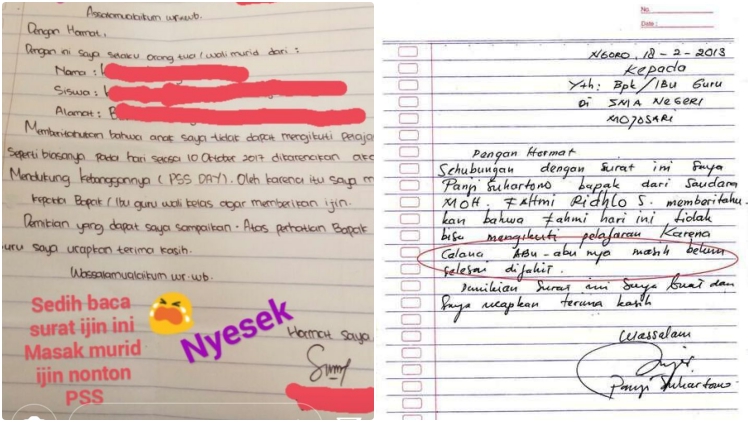 Assalamualaikum wr.wb.
Dengan Hormat,
Dengan ini saya selaku orang tua / wali murid dari :
Nama :
Siswa :
Alamat : B
Memberitahukan bahwa anak saya tidak dapat mengikuti pelaja
Seperti biasanya pada hari selasa 10 Oktober 2017 dikarenakan aka
Mendukung kebanggannya (PSS DAY). Oleh karena itu saya m
kepada Bapak / Ibu guru wali kelas agar memberikan ijin.
Demikian yang dapat saya sampaikan. Atas perhatian Bapak
uru saya ucapkan terima kasih.
Wassalamualaikum wr.wb.
Hormat saya
Sedih baca
surat ijin ini
Masak murid
ijin nonton
PSS
Nyesek
No.
Date :
NGORO, 18-2-2013
Kepada
Yth: Bpk/IBu Guru
Di SMA NEGERI
MOJOSARI
Dengan Hormat
Sehubungan dengan surat ini Saya
Panji Suhartono bapak dari Saudara
MOH. FAHMI RIDHLO S. memberitahu-
kan bahwa Fahmi hari ini tidak
bisa mengikuti pelajaran Karena
Celana ABU-abu nya masih belum
selesai dijahit.
Demikian Surat ini Saya buat dan
Saya ucapkan terima kasih
Wassalam
Panji Suhartono